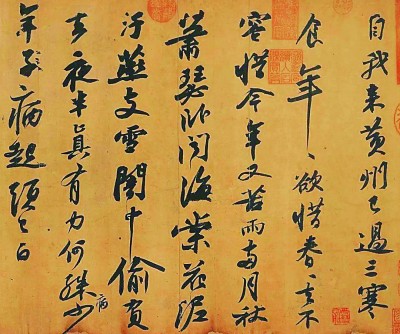 自我來黃州已過三寒
食年々欲惜春々去不
容惜今年又苦雨兩月秋
蕭瑟卧聞海棠花泥
汙燕支雪闇中偷負
去夜半真有力何殊病少
年子病起頭已白